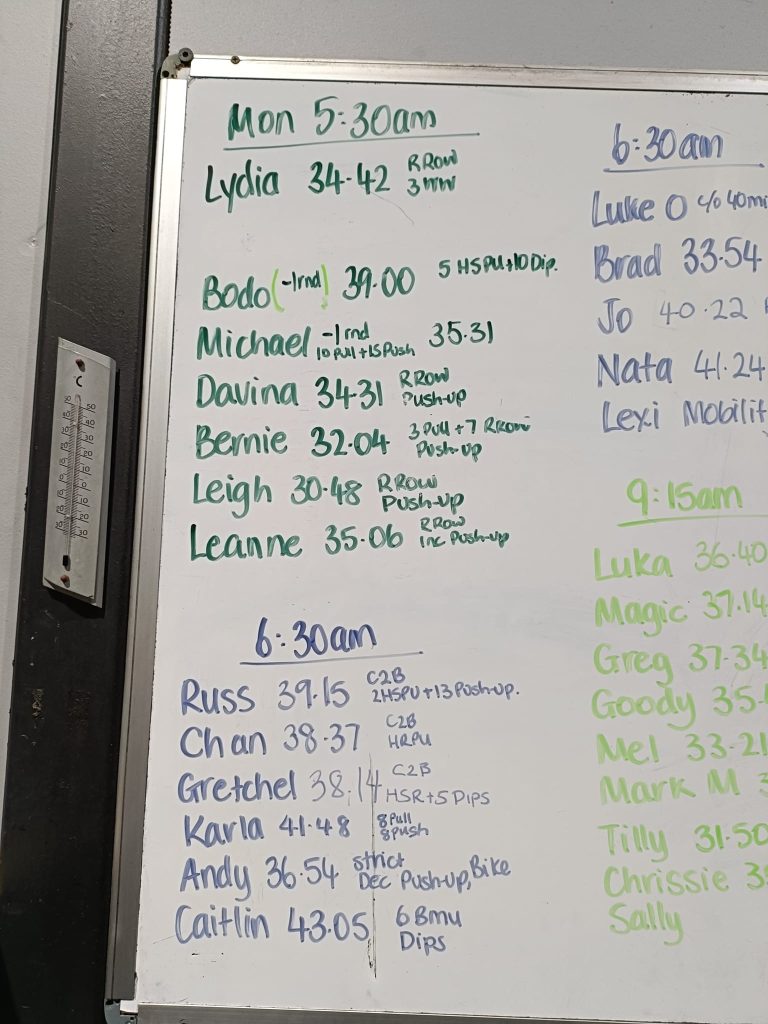 Mon 5:30am
Lydia 34.42 RRow
3 WW
Bodo (-1rnd) 39.00 5 HSPU+10Dip.
Michael -1rnd 35.31
10 Pull +15Push
Davina 34.31 RRow
Push-up
Bernie 32.04 3 Pull + 7 RRow
Push-up
Leigh 30.48 RRow
Push-up
Leanne 35.06 RRow
inc Push-up
6:30am
Russ 39.15 C2B
2HSPU+13 Push-up.
Chan 38.37 C2B
HRPU
Gretchel 38.14 C2B
HSR+5 Dips
Karla 41.48 8 Pull
8 Push
Andy 36.54 strict
Dec Push-up, Bike
Caitlin 43.05 6 Bmu
Dips
6:30am
Luke O c/o 40mi
Brad 33.54
Jo 40.22
Nata 41.24
Lexi Mobilit
9:15am
Luka 36.40
Magic 37.14
Greg 37.34
Goody 35.
Mel 33.21
Mark M 3
Tilly 31.50
Chrissie 3
Sally
°C